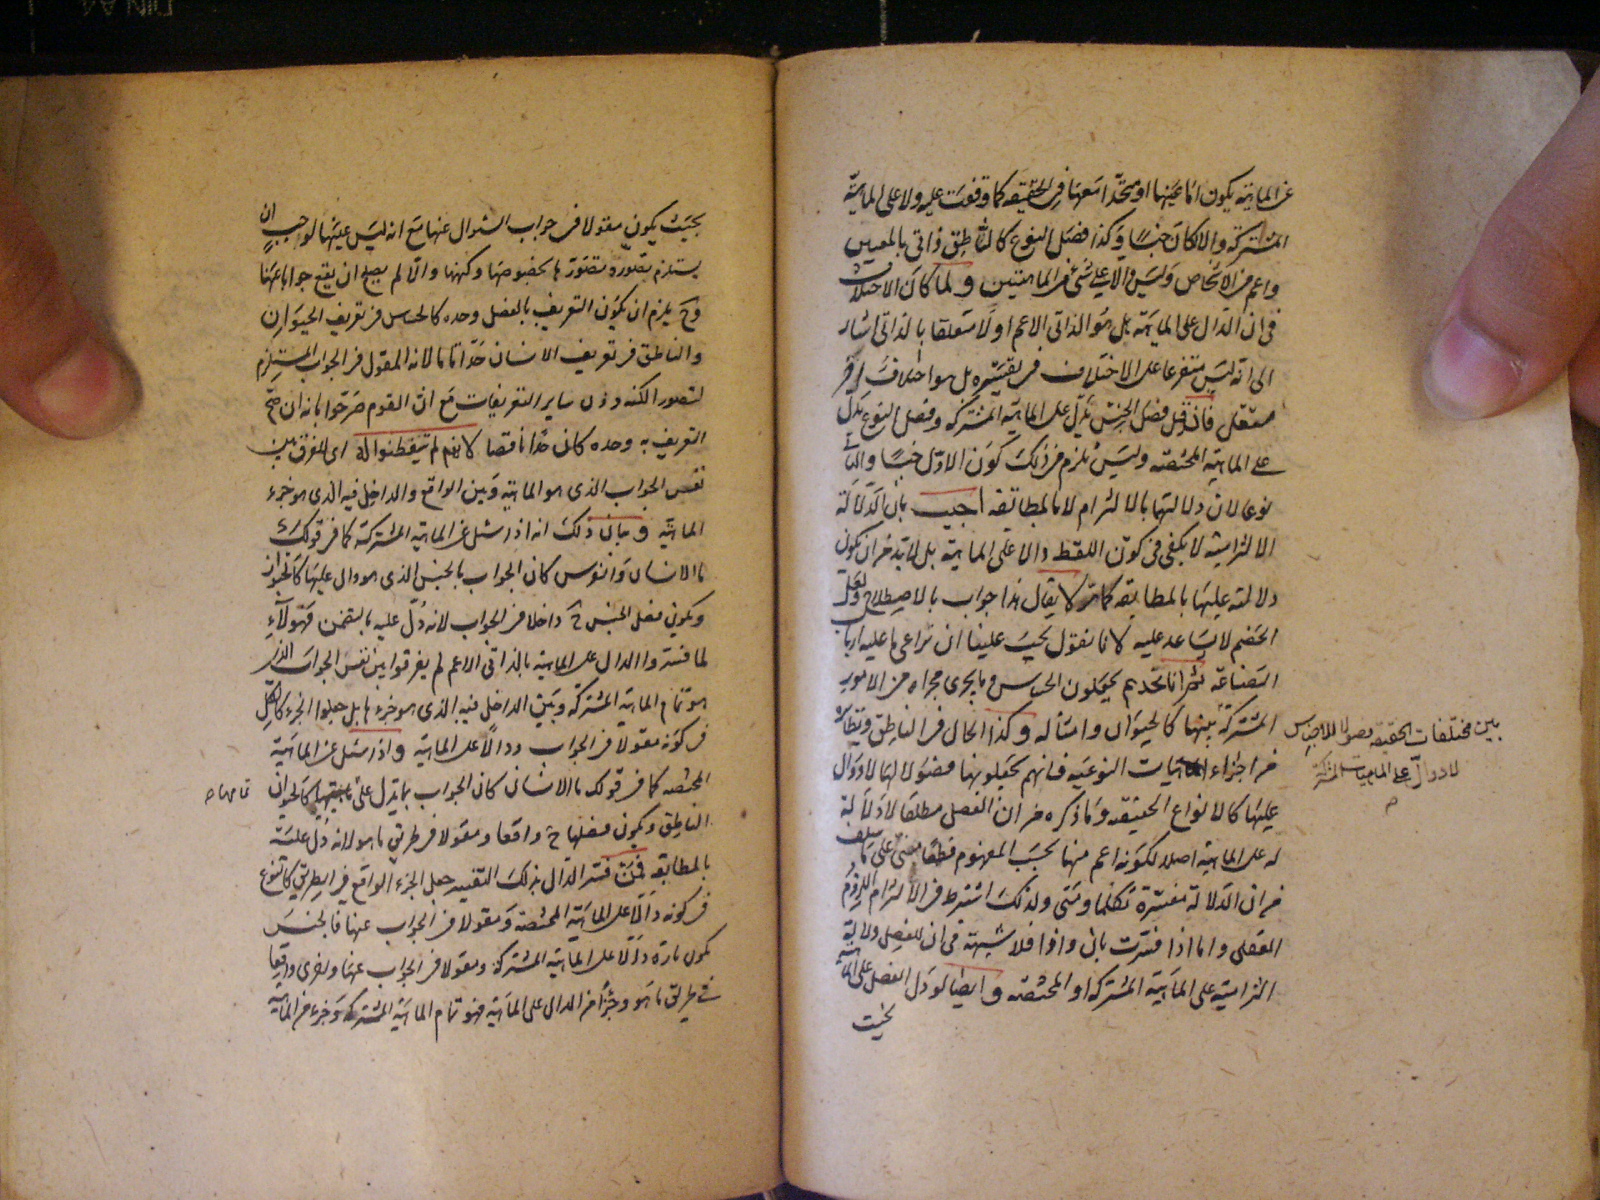 عن الماهية يكون اما عينها او متحدا معها في الحقيقة كما وقفت عليه ولا على الماهية
المشتركة والا لكان جنسا وكذا فصل النوع كالناطق ذاتي بالمعنيين
واعم من الاشخاص وليس دالا على شئ من الماهيتين ولما كان الاختلاف
في ان الدال على الماهية بل هو الذاتي الاعم او لا متعلقا بالذاتي اشار
الى انه ليس متفرعا على الاختلاف في تفسيره بل هو اختلاف آخر
مستقل فان قيل فصل الجنس يدل على الماهية المشتركة وفصل النوع يدل
على الماهية المختصة وليس يلزم من ذلك كون الاول جنسا والثاني
نوعا لان دلالتها بالالتزام لا بالمطابقة اجيب بان الدلالة
الالتزامية لا يكفي في كون اللفظ دالا على الماهية بل لا بد من ان يكون
دلالته عليها بالمطابقة كما مر لا يقال هذا جواب بالاصطلاح ولعل
الخصم لا يساعد عليه لانا نقول يجب علينا ان نراعي ما عليه ارباب
الصناعة ثم انا نجدهم يجعلون الحساس وما يجرى مجراه من الامور
المشتركة بينها كالحيوان وامثاله وكذا الحال في الناطق ونظائره
من اجزاء الماهيات النوعية فانهم يجعلونها فصولا لها لا دوال
عليها كالانواع الحقيقة وما ذكره من ان الفصل مطلقا لا دلالة
له على الماهية اصلا لكونه اعم منها بحسب المفهوم قطعا مبني على ما سلف
من ان الدلالة مفسرة تكلما ومتى ولذلك اشترط في الالتزام اللزوم
العقلي واما اذا فسرت بان واذا فلا شبهة في ان للفصل دلالة
التزامية على الماهية المشتركة او المختصة وايضا لو دل الفصل على الماهية
بحيث
بين مختلفات الحقيقة فصولا للاجناس
لا دوال على الماهيات المشتركة
بحيث يكون مقولا في جواب السؤال عنها مع انه ليس عينها لوجب ان
يستلزم تصوره تصورها بخصوصها وكنهها والا لم يصلح ان يقع جوابا عنها
وح يلزم ان يكون التعريف بالفصل وحده كالحساس في تعريف الحيوان
والناطق في تعريف الانسان حدا تاما لانه المقول في الجواب المستلزم
لتصور الكنه دون ساير التعريفات مع ان القوم صرحوا بانه ان صح
التعريف به وحده كان حدا ناقصا لانهم لم يتفطنوا له اى للفرق بين
نفس الجواب الذي هو الماهية وبين الواقع والداخل فيه الذي هو جزء
الماهية وبيان ذلك انه اذا سئل عن الماهية المشتركة كما في قولك
ما الانسان والفرس كان الجواب بالجنس الذي هو دال عليها كالحيوان
ويكون فصل الجنس ح داخلا في الجواب لانه دل عليه بالتضمن فهؤلاء
لما فسروا الدال على الماهية بالذاتي الاعم لم يفرقوا بين نفس الجواب الذي
هو تمام الماهية المشتركة وبين الداخل فيه الذي هو جزءها بل جعلوا الجزء كالكل
في كونه مقولا في الجواب ودالا على الماهية واذا سئل عن الماهية
المختصة كما في قولك ما الانسان كان الجواب بما يدل على ماهيتها كالحيوان
الناطق ويكون فصلها ح واقعا ومقولا في طريق ما هو لانه دل عليه
بالمطابقة فمن فسر الدال بذلك التفسير جعل الجزء الواقع في الطريق كالنوع
في كونه دالا على الماهية المختصة ومقولا في الجواب عنها فالجنس
يكون تارة دالا على الماهية المشتركة ومقولا في الجواب عنها واخرى واقعا
في طريق ما هو وجزءا من الدال على الماهية فهو تمام الماهية المشتركة وجزء من الماهية